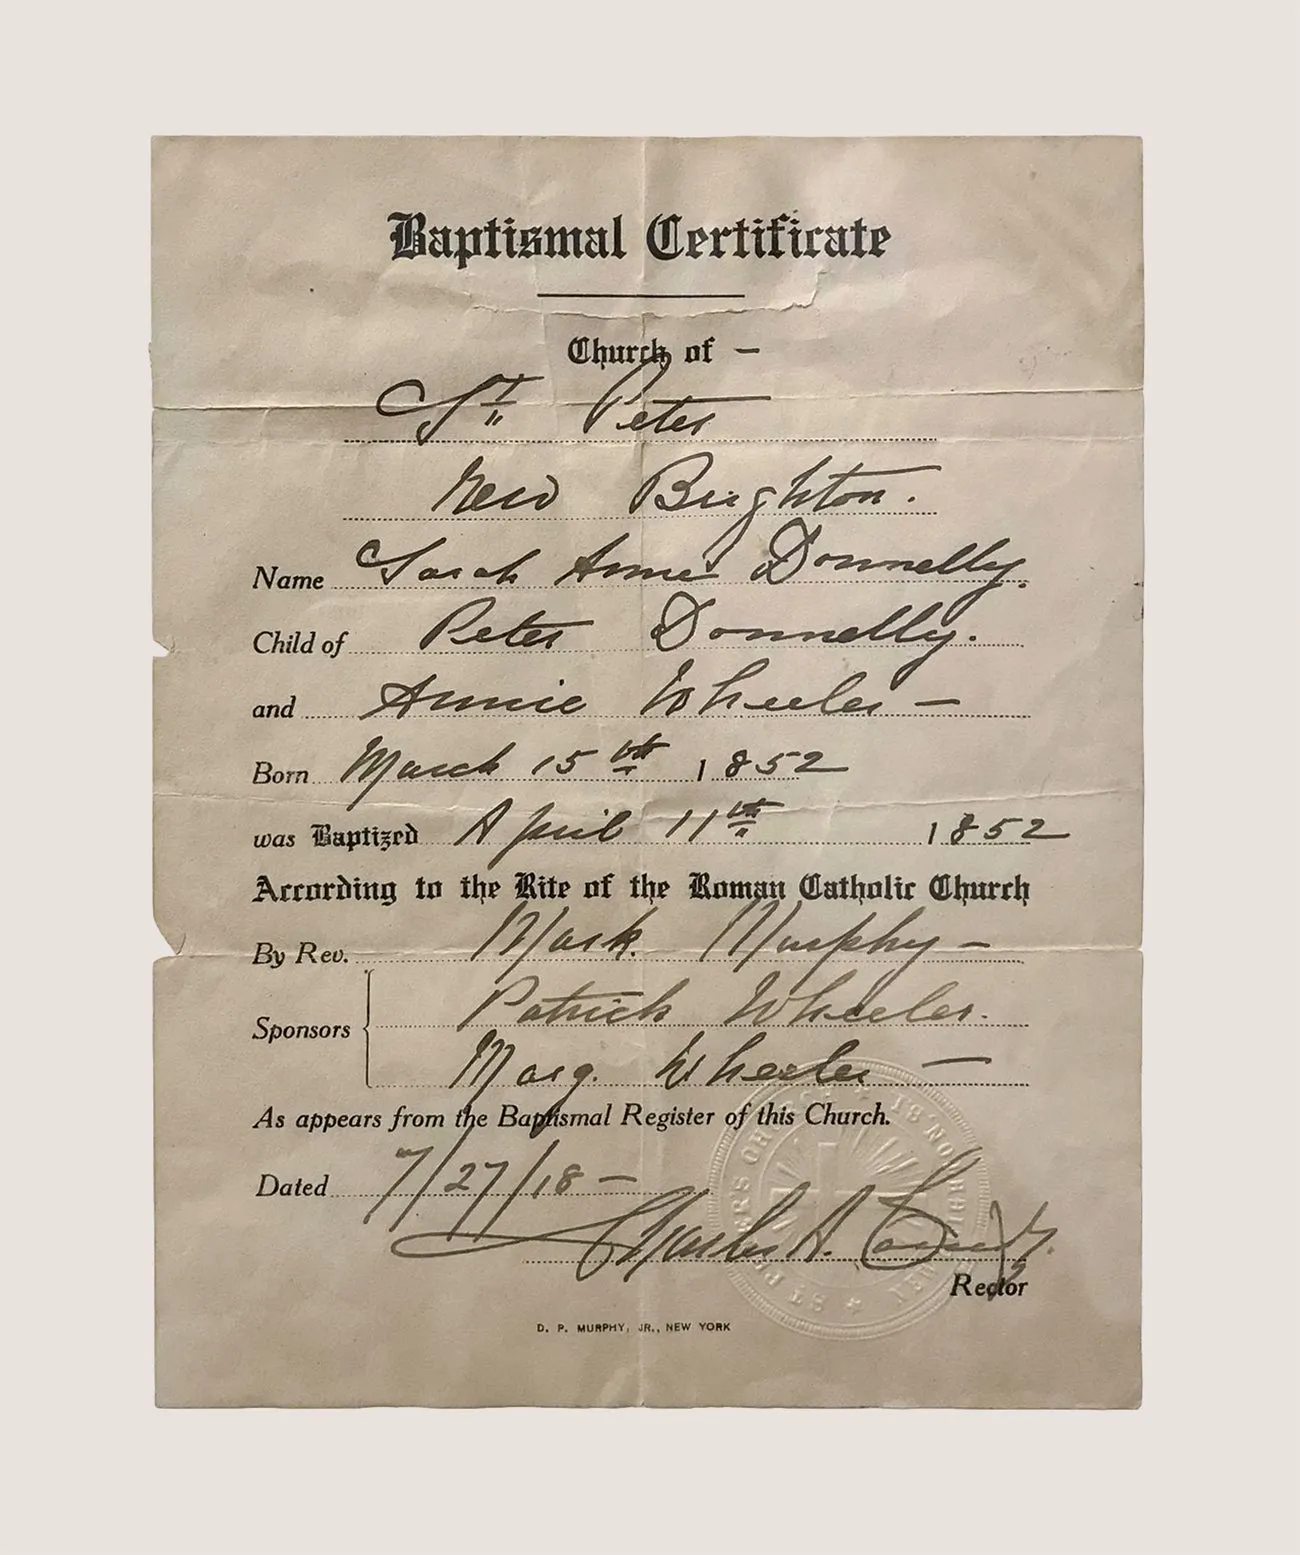 Baptismal Certificate
Church of —
St Peter
New Brighton.
Name Sarah Annie Donnelly.
Child of Peter Donnelly.
and Annie Wheeler —
Born March 15th 1852
was Baptized April 11th 1852
According to the Rite of the Roman Catholic Church
By Rev. Mark Murphy —
Sponsors Patrick Wheeler.
Marg. Wheeler —
As appears from the Baptismal Register of this Church.
Dated 7/27/18 —
Charles A.
Rector
ST PETER'S CHURCH
D. P. MURPHY, JR., NEW YORK